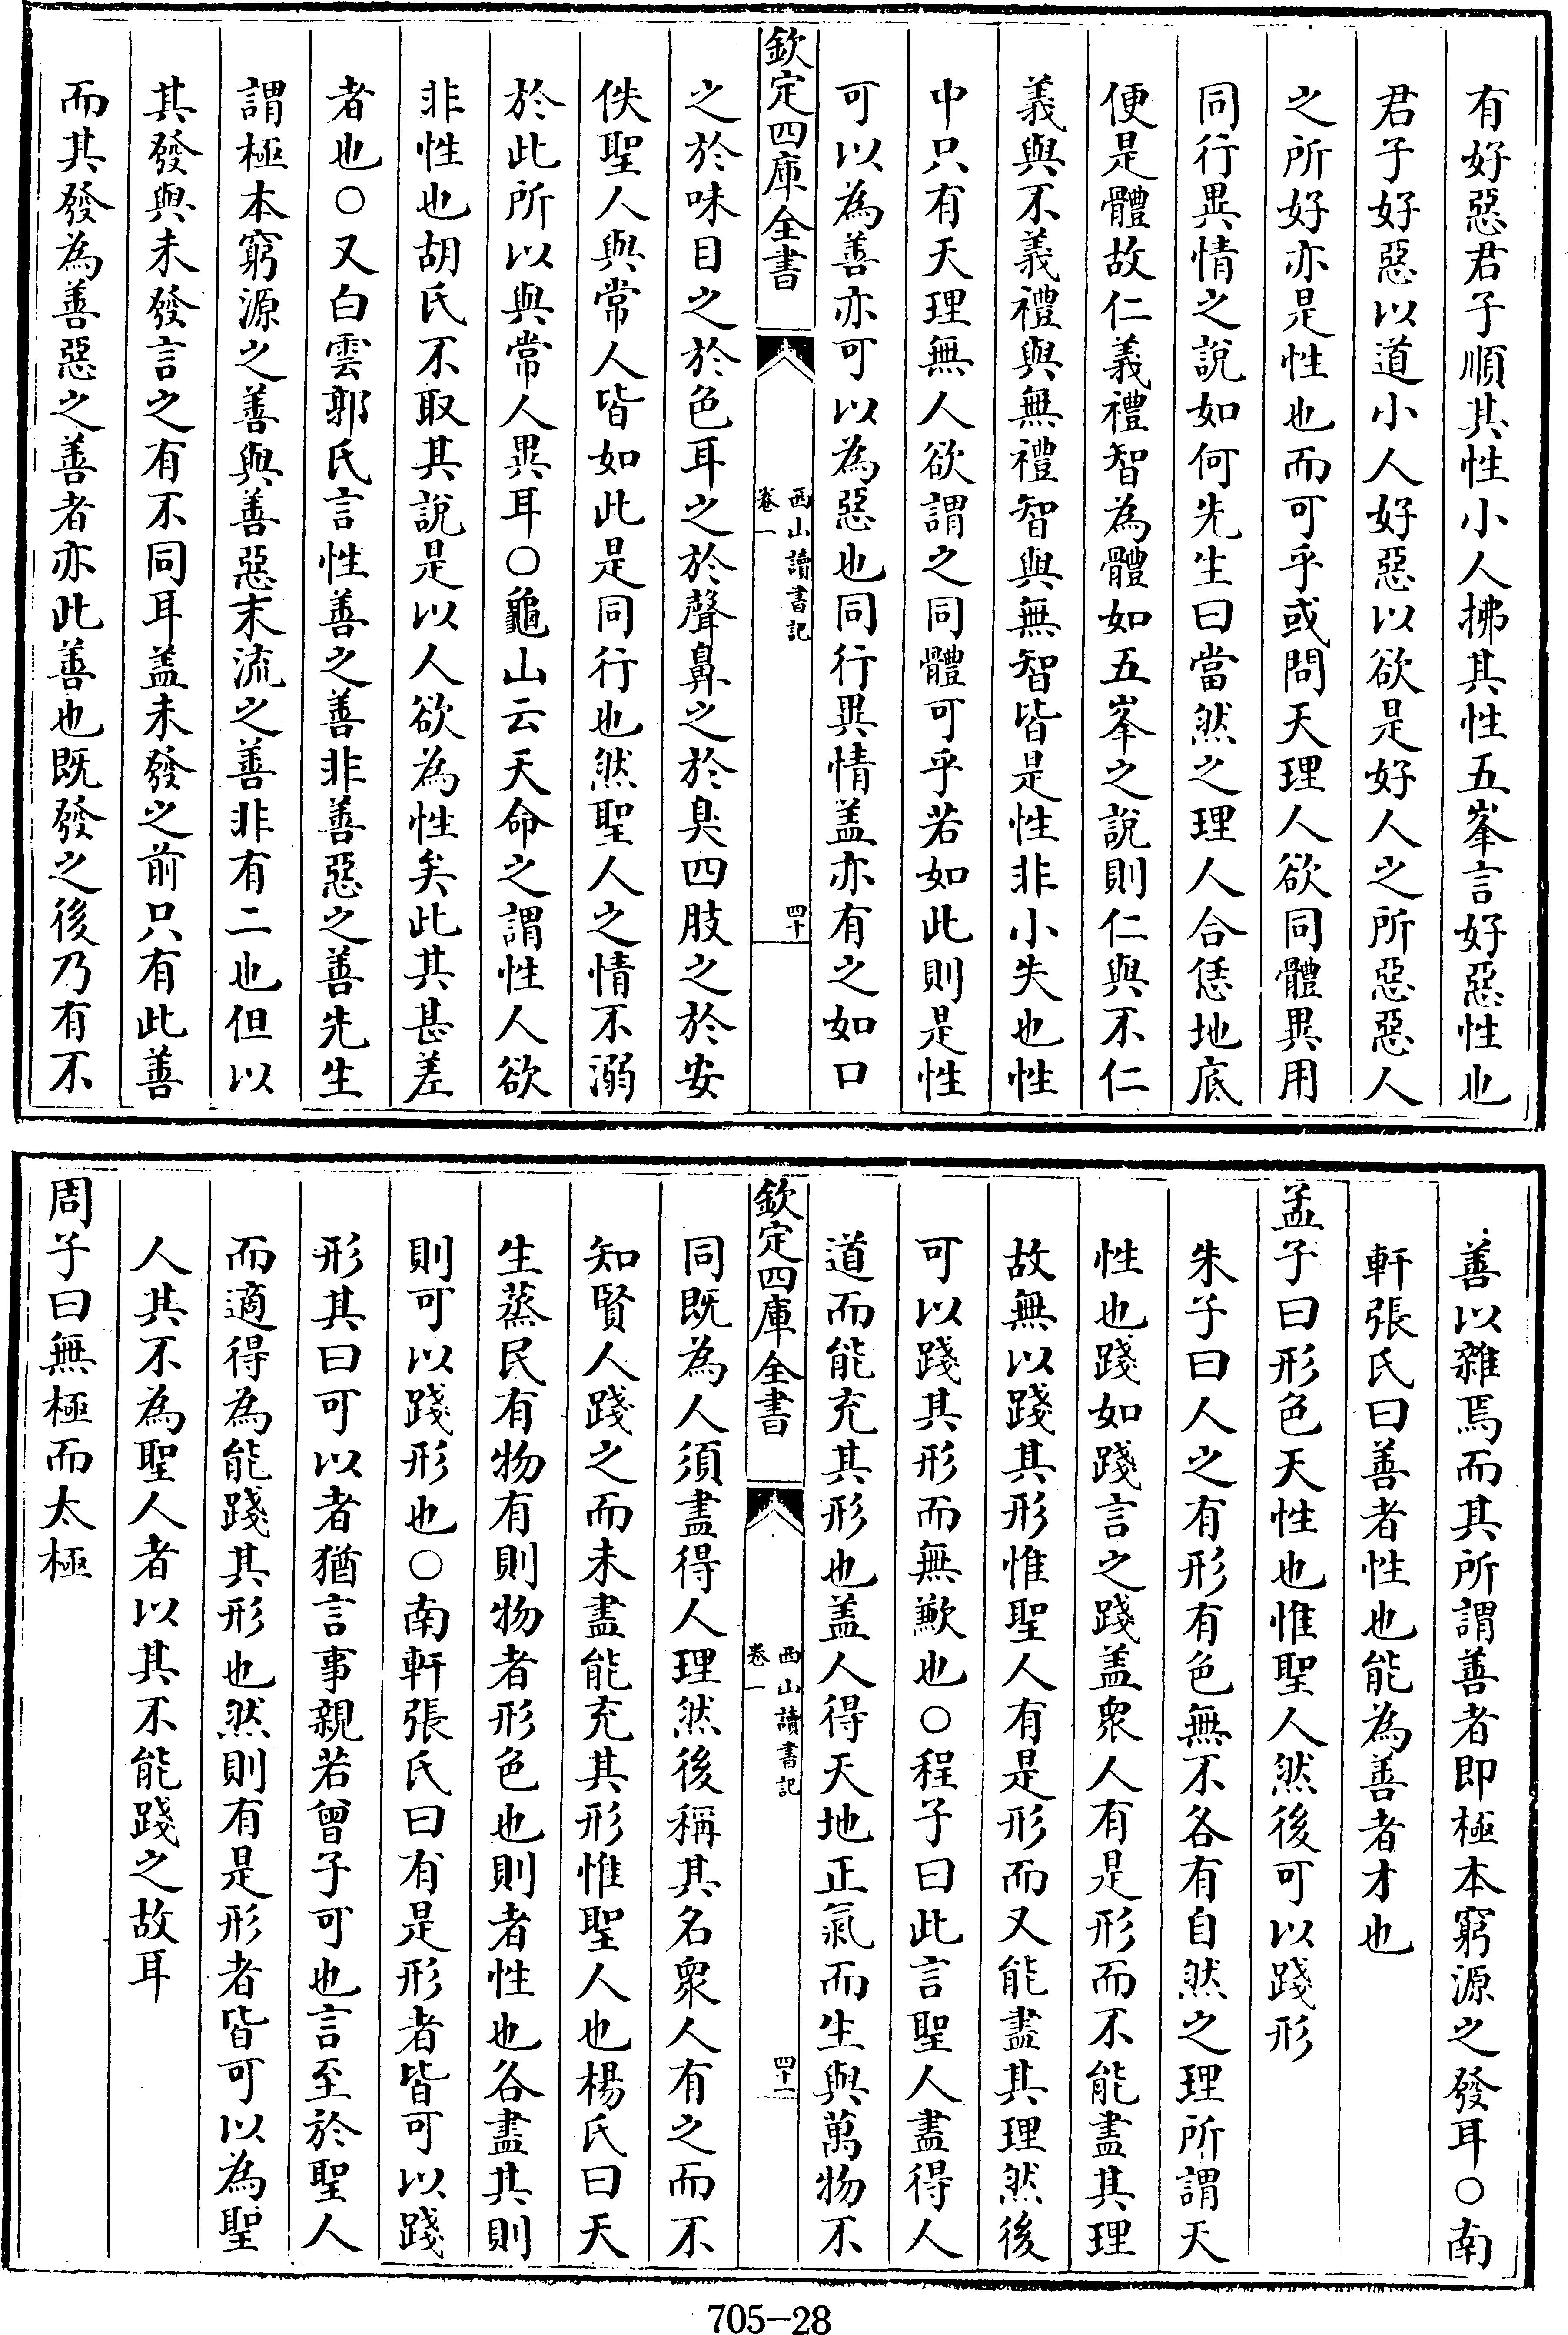 有好惡君子順其性小人拂其性五峯言好惡性也
君子好惡以道小人好惡以欲是好人之所惡惡人
之所好亦是性也而可乎或問天理人欲同體異用
同行異情之說如何先生曰當然之理人合恁地底
便是體故仁義禮智為體如五峯之說則仁與不仁
義與不義禮與無禮智與無智皆是性非小失也性
中只有天理無人欲謂之同體可乎若如此則是性
可以為善亦可以為惡也同行異情盖亦有之如口
欽定四庫全書
西山讀書記
卷一
四十
之於味目之於色耳之於聲鼻之於臭四肢之於安
佚聖人與常人皆如此是同行也然聖人之情不溺
於此所以與常人異耳○龜山云天命之謂性人欲
非性也胡氏不取其說是以人欲為性矣此其甚差
者也○又白雲郭氏言性善之善非善惡之善先生
謂極本窮源之善與善惡末流之善非有二也但以
其發與未發言之有不同耳盖未發之前只有此善
而其發為善惡之善者亦此善也既發之後乃有不
善以雜焉而其所謂善者即極本窮源之發耳○南
軒張氏曰善者性也能為善者才也
孟子曰形色天性也惟聖人然後可以踐形
朱子曰人之有形有色無不各有自然之理所謂天
性也踐如踐言之踐盖衆人有是形而不能盡其理
故無以踐其形惟聖人有是形而又能盡其理然後
可以踐其形而無歉也○程子曰此言聖人盡得人
道而能充其形也盖人得天地正氣而生與萬物不
欽定四庫全書
西山讀書記
卷一
四十一
同既為人須盡得人理然後稱其名衆人有之而不
知賢人踐之而未盡能充其形惟聖人也楊氏曰天
生蒸民有物有則物者形色也則者性也各盡其則
則可以踐形也○南軒張氏曰有是形者皆可以踐
形其曰可以者猶言事親若曾子可也言至於聖人
而適得為能踐其形也然則有是形者皆可以為聖
人其不為聖人者以其不能踐之故耳
周子曰無極而太極
705-28